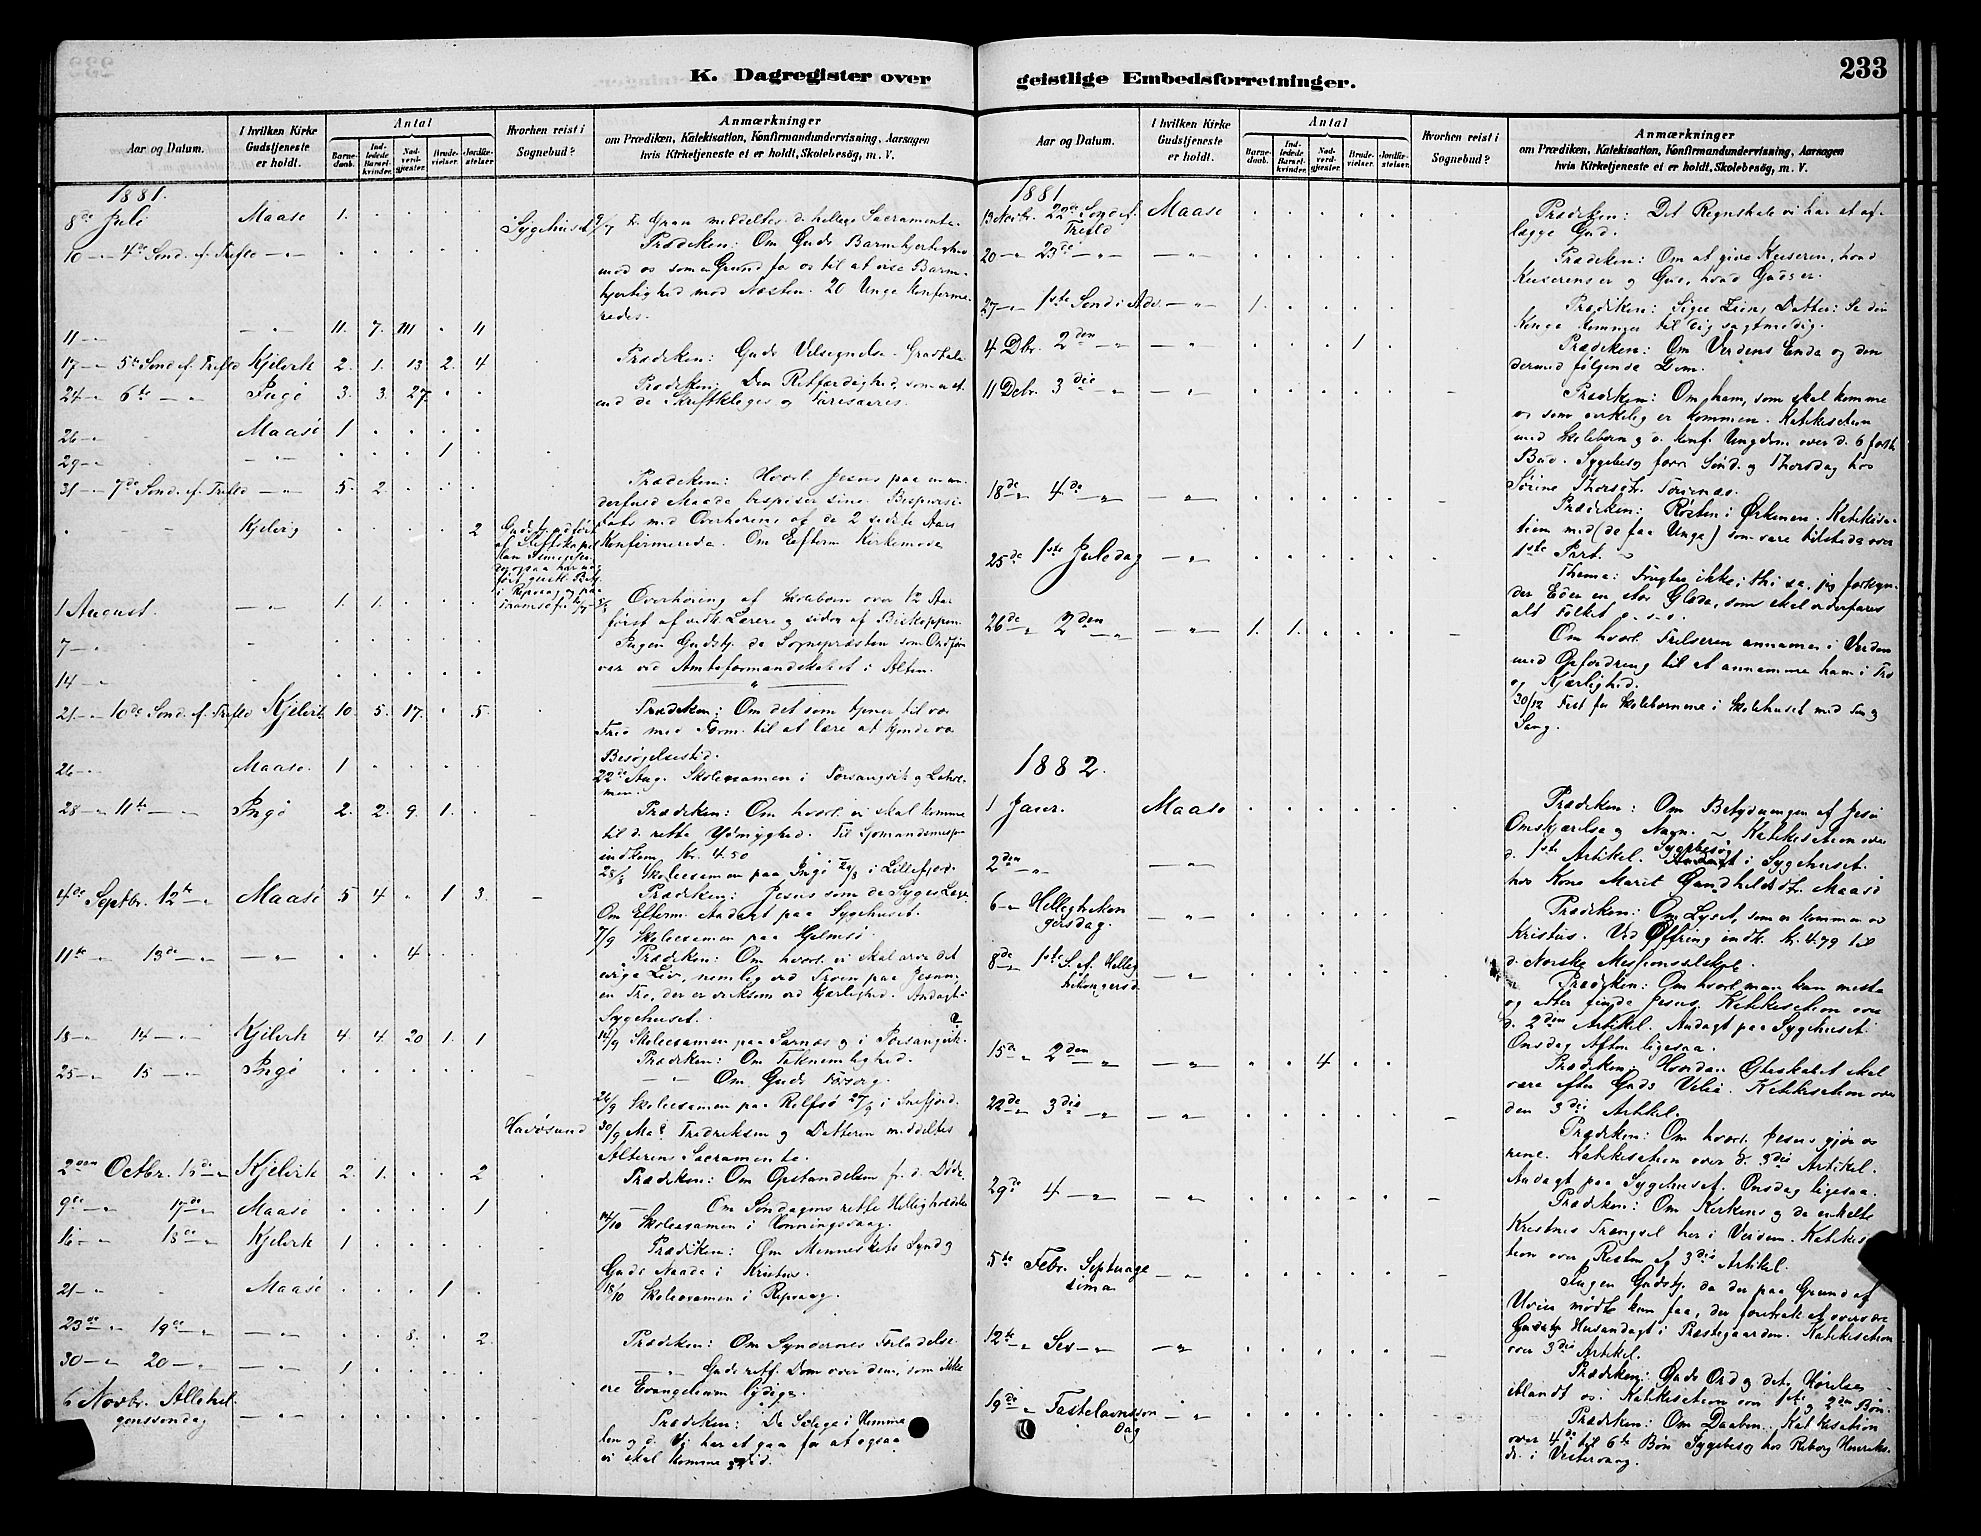 K. Dagregister over
Aar og Datum.
I hvilken Kirke Gudstjeneste er holdt.
Antal
Barnedaab.
Indledede Barselkvinder.
Nadverdgjester.
Brudevielser.
Jordfæstelser.
Hvorhen reist i Sognebud?
Anmærkninger
om Prædiken, Katekisation, Konfirmandundervisning, Aarsagen
hvis Kirketjeneste ei er holdt, Skolebesøg, m. V.
1881.
8de Juli Maasø 1. Sygehuset 9/7 Gran meddeltes d. hellige Sacramente.
10 4de Sønd. ef. Trefld Prædiken: Om Guds Barmhjertighed
mod os som en Grund for os til at vise Barm-
hjertighed mod Næsten. 20 Unge Konfirme-
redes.
11 11. 7. 111 11
17 5te Sønd. ef. Trefld Kjelvik 2. 1. 13 2. 4 Prædiken: Guds Velsignelse.
24 6te Ingø 3. 3. 27. Prædiken: Den Retfærdighed, som
end de Skriftkloges og Farisæeres.
26 Maasø 1
29 1
31 7de Sønd. ef. Trefld 5. 2. Prædiken: Hvorl. Jesus paa en un-
derfuld Maade bespiser sine. Bispevisi-
tats med Overhøring af de 2 sidste Aars
Kjelvig 2 Konfirmerede. Om Efterm. Kirkemøde
1 August. 1. 1. Overhøring af Skolebørn over 12 Aar
først af vedk. Lærere og siden af Biskoppen.
7 Ingen Gudstj. da Sognepræsten som Ordfører
var ved Amtsformandskabet i Alten.
14
21 10de Sønd. ef. Trefld Kjelvik 10. 5. 17. 5. Prædiken: Om det som tjener til vor
Fred med Form. til at lære at kjende vor
Besøgelsestid.
26 Maasø. 1 22de Aug. Skoleexamen i Porsangvik og
28 11te Ingø 2. 2. 9. 1. Prædiken: Om hvorl. vi skal komme
til d. rette Ydmyghed. Til Sjømandsmisj.
indkom Kr. 4.50
28/8 Skoleexamen paa Ingø i Lillefjord.
4de Septbr. 12te Maasø 5 4 1 3. Prædiken: Jesus som de Syges Læge
Om Efterm. Andagt paa Sygehuset.
7/9 Skoleexamen paa Hjelmsø.
11te 13de 4 Prædiken: Om hvorl. vi skal arve det
evige Liv, nemlig ved Troen paa Jesum,
en Tro, der er virksom ved Kjærlighed. Andagt i
Sygehuset.
18 14 Kjelvik 4. 4. 20 1. 1 14/9 Skoleexamen paa Sarnæs og i Porsangvik.
Prædiken: Om Taknemlighed.
25 15 Ingø Om Guds Forsorg.
26/9 Skoleexamen paa Rolfsø 27/9 i Snefjord.
Havøsund 30/9 Fredriksen og Datteren meddeltes
Alterens Sacramente.
2den Octbr. 16de Kjelvik 2. 1. 2 Prædiken: Om Opstandelsen fr. d. Døde.
9de 17de Maasø 1 Om Søndagens rette Helligholdelse
14/10 Skoleexamen i Honningsvaag.
16 18de Kjelvik 1 Prædiken: Om Menneskets Synd og
Guds Naade i Kristus.
21 Maasø 1 18/10 Skoleexamen i Repvaag.
23de 19de 8. 2. Prædiken: Om Syndernes Forladelse.
30 20 1 Guds retf. Dom over dem, som ikke
ere Evangelium lydige.
6 Novbr. Allehel-
genssøndag Prædiken: De Salige i Himme-
len og d. Vej har at gaa for at ogsaa
vi skal komme did.
geistlige Embedsforretninger.
233
Aar og Datum.
I hvilken Kirke Gudstjeneste er holdt.
Antal
Barnedaab.
Indledede Barselkvinder.
Nadverdgjester.
Brudevielser.
Jordfæstelser.
Hvorhen reist i Sognebud?
Anmærkninger
om Prædiken, Katekisation, Konfirmandundervisning, Aarsagen
hvis Kirketjeneste ei er holdt, Skolebesøg, m. V.
1881
13 Novbr. 22de Sønd. ef. Trefld Maasø Prædiken: Det Regnskab vi har at af-
lægge Gud.
20 23de Prædiken: Om at give Keiseren, hvad
Keiserens er og Gud, hvad Guds er.
27 1ste Sønd i Adv. 1. Prædiken: Siger Zions Datter: Se din
Konge kommer til dig sagtmodig.
4 Dbr. 2den 1 Prædiken: Om Verdens Ende og den
dermed følgende Dom.
11 Debr. 3die Prædiken: Om ham, som skal komme
og som virkelig er kommen. Katekisation
med Skolebørn og d. konf. Ungdom over d. 6 første
Bud. Sygebesøg forr. Sønd. og Thorsdag hos
Sørine
18de 4de Prædiken: Røsten i Ørkenen. Katekisa-
tion med (de faa Unge) som vare tilstede over
1ste Part.
25de 1ste Juledag Thema: Frygter ikke, thi se, jeg forkyn-
der Eder en stor Glæde, som skal vederfares
alt Folket o.s.v.
26de 2den 1. 1. Om hvorl. Frelseren annames i Verden
med Opfordring til at annamme ham i Tro
og Kjærlighed.
30/12 Fest for Skolebørnene i Skolehuset med Te og
Sang.
1882.
1 Januar. Maasø Prædiken: Om Betydningen af Jesu
Omskjærelse og Navn. Katekisation over
2den d. 1ste Artikel. Sygebesøg i Sygehuset.
hos Kone Marit Maasø
6 Hellighekon
gersdag. Prædiken: Om Lyset, som er kommen ved
Kristus. Ved Offring indk. Kr. 4.79 til
d. Norske Missionsselskab.
8de 1ste S. ef. Hellig
3kongersd. Prædiken: Om hvorl. man kan miste
og atter finde Jesus. Katekisation over
d. 2den Artikel. Andagt paa Sygehuset.
Onsdag Aften ligesaa.
15de 2den 4 Prædiken: Hvordan Ægteskabet skal
være efter Guds Vilie. Katekisation over
22de 3die den 3die Artikel.
Prædiken: Om hvorl. Jesus gjør os
rene. Katekisation over d. 3die Artikel.
Andagt paa Sygehuset. Onsdag ligesaa.
29de 4 Prædiken: Om Kirkens og de enkelte
Kristnes Trængsel her i Verden. Katekisa-
tion over Resten af 3die Artikel.
5te Febr. Septuage
sima Ingen Gudstj. da der paa Grund af
Uveir mødte kun faa, der foretrak at overvære
Husandagt i Præstegaarden. Katekisation
12te Sex over 3die Artikel.
Prædiken: Guds Ord og dets Hørelse
iblandt os. Katekisation over 1ste og 2den Bøn.
19de Fastelavnssøn
dag Prædiken: Om Daaben. Katekisation
over 4de til 6te Bøn Sygebesøg hos
i Vestervaag.